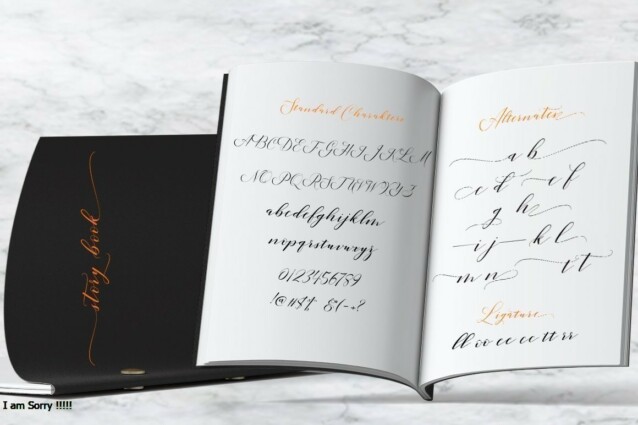 story book
Standard Charakters
ABCDEFGHIJKLM
NOPQRSTUVWXYZ
abcdefghijklm
nopqrstuvwxyz
0123456789
Alternates
a b
c d e f
g h
i j k l
m n t
Ligature
ll oo cc ee tt rr
I am Sorry !!!!!